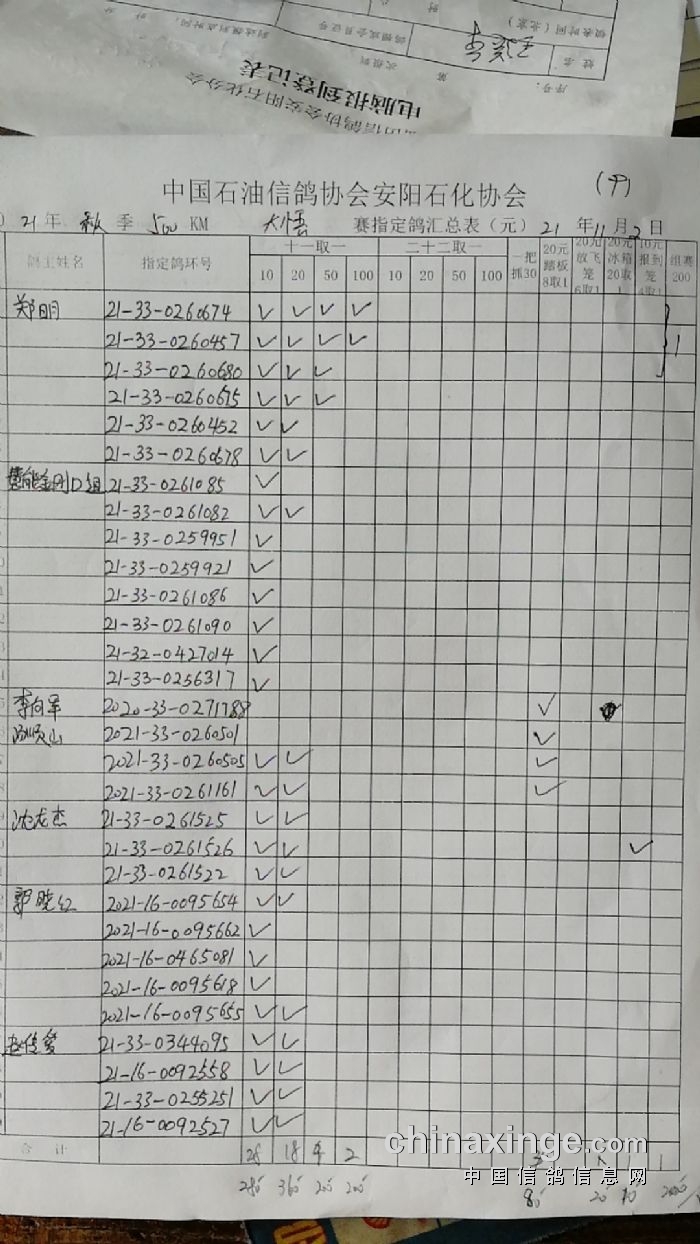 序号：
姓名
第 次报到
鸽棚或会员证号
到达报到点时间：
领表时间（北京）
时
时 分
电脑报到登记表
国信鸽协会安阳石化分会
中国石油信鸽协会安阳石化协会
21 年 秋 季 500 KM 大悟 赛指定鸽汇总表（元） 21 年 11 月 2 日
鸽主姓名 指定鸽环号 十一取一 二十二取一 一把抓30 20元踏板8取1 20元放飞笼6取1 20元冰箱20取1 10元报到笼4取1 组赛200
10 20 50 100 10 20 50 100
郑明 21-33-0260674 ✓ ✓ ✓ ✓
21-33-0260457 ✓ ✓ ✓ ✓ 1
21-33-0260680 ✓ ✓ ✓
21-33-0260675 ✓ ✓ ✓
21-33-0260452 ✓ ✓
21-33-0260678 ✓ ✓
21-33-0261085 ✓
21-33-0261082 ✓ ✓
21-33-0259951 ✓
21-33-0259921 ✓
21-33-0261086 ✓
21-33-0261090 ✓
21-32-0427014 ✓
21-33-0256317 ✓
李向军 2020-33-0271788 ✓
2021-33-0260501 ✓
2021-33-0260505 ✓ ✓ ✓
2021-33-0261161 ✓ ✓ ✓
沈龙杰 21-33-0261525 ✓ ✓
21-33-0261526 ✓ ✓ ✓
21-33-0261522 ✓ ✓
郭晓红 2021-16-0095654 ✓ ✓
2021-16-0095662 ✓
2021-16-0465081 ✓
2021-16-0095618 ✓
2021-16-0095655 ✓ ✓
赵传爱 21-33-0344095 ✓ ✓
21-16-0092558 ✓ ✓
21-33-0255251 ✓ ✓
21-16-0092527 ✓ ✓
合计 28 18 4 2
280 360 200 200 80 20 10
chinaxinge.com
中国信鸽信息网